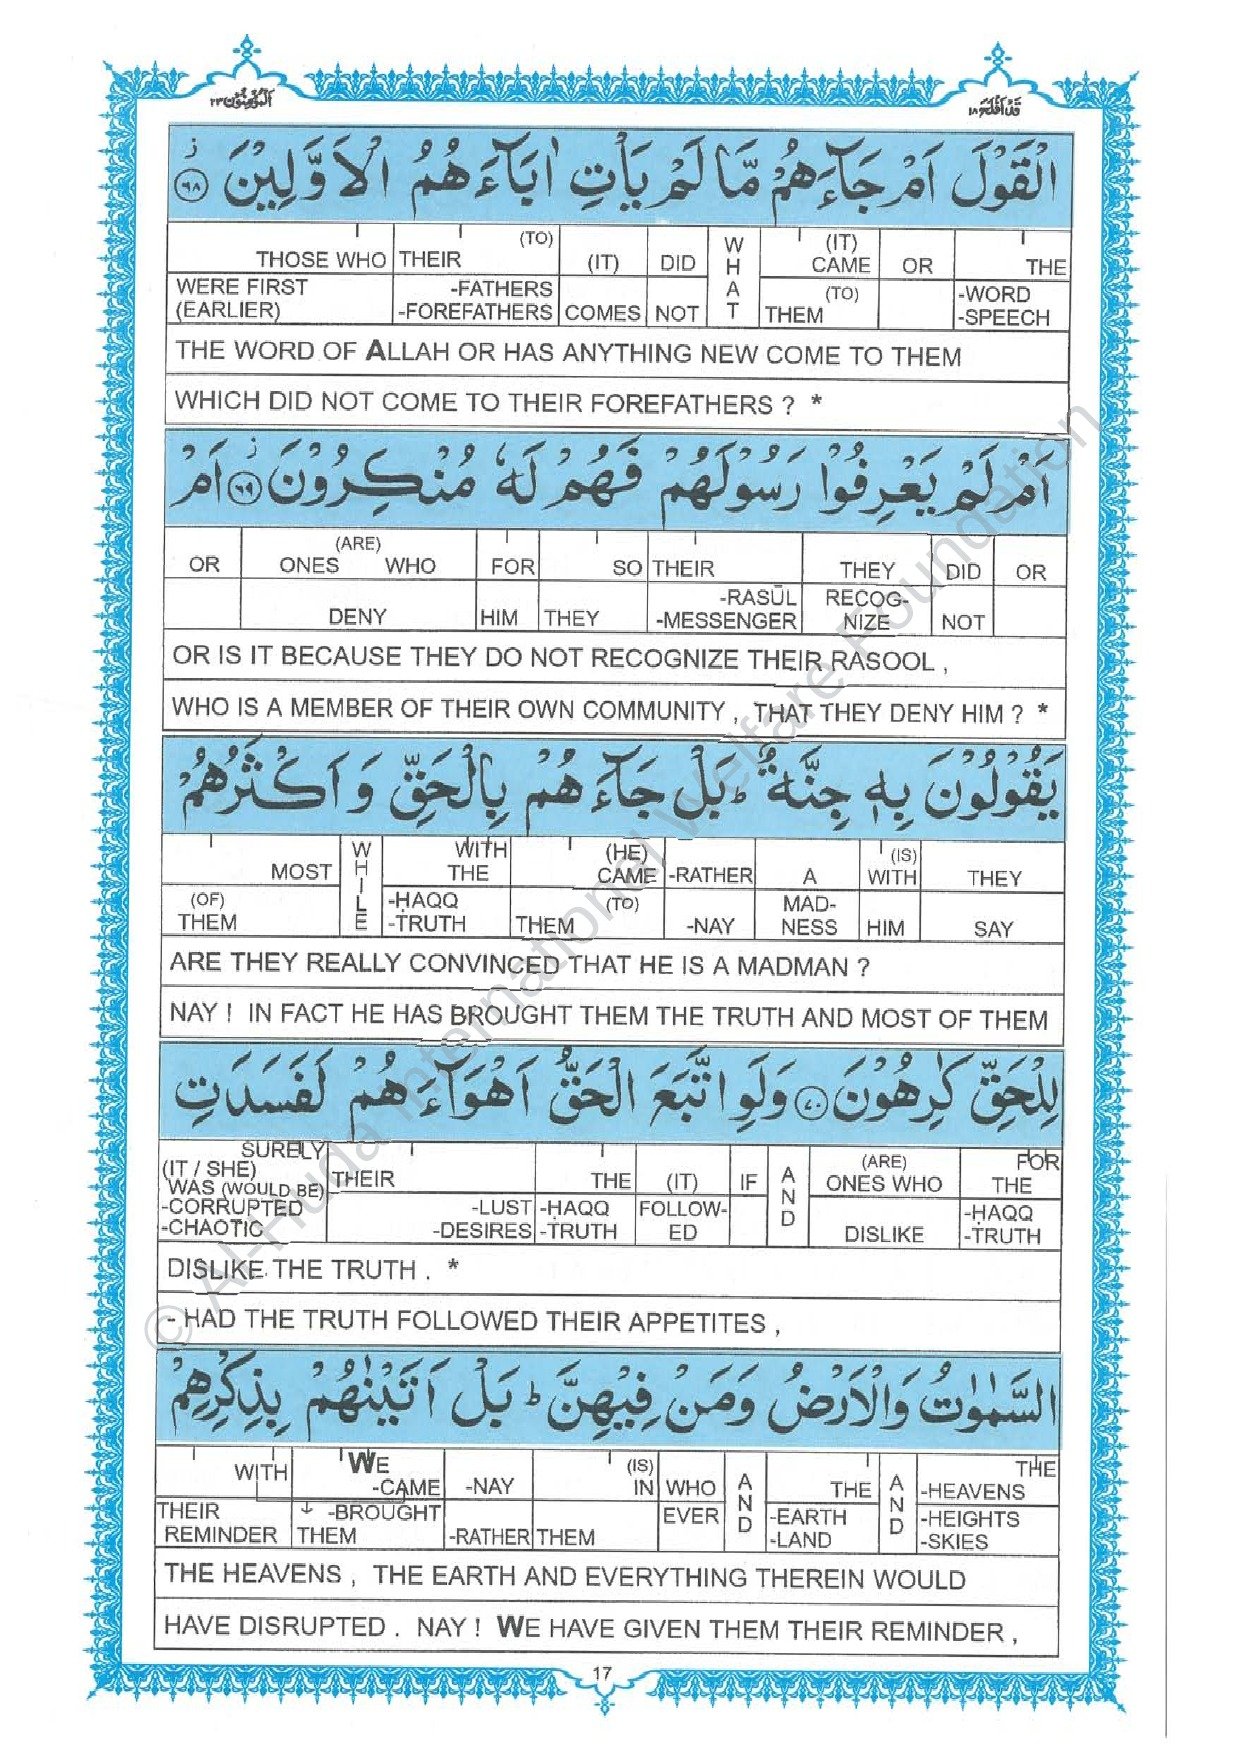 اَلْمُؤْمِنُوْن٢٣ قَدْ اَفْلَحَ١٨
الْقَوْلَ اَمْ جَآءَهُمْ مَّا لَمْ يَاْتِ اٰبَآءَهُمُ الْاَوَّلِيْنَ ﴿٦٨﴾ ز
THOSE WHO THEIR (TO) (IT) DID WHAT (IT) CAME OR THE
WERE FIRST (EARLIER) -FATHERS -FOREFATHERS COMES NOT (TO) THEM -WORD -SPEECH
THE WORD OF ALLAH OR HAS ANYTHING NEW COME TO THEM
WHICH DID NOT COME TO THEIR FOREFATHERS ? *
اَمْ لَمْ يَعْرِفُوْا رَسُوْلَهُمْ فَهُمْ لَهٗ مُنْكِرُوْنَ ﴿٦٩﴾ ز اَمْ
OR (ARE) ONES WHO FOR SO THEIR THEY DID OR
DENY HIM THEY -RASŪL -MESSENGER RECOG-NIZE NOT
OR IS IT BECAUSE THEY DO NOT RECOGNIZE THEIR RASOOL ,
WHO IS A MEMBER OF THEIR OWN COMMUNITY , THAT THEY DENY HIM ? *
يَقُوْلُوْنَ بِهٖ جِنَّةٌ ؕ بَلْ جَآءَهُمْ بِالْحَقِّ وَاَكْثَرُهُمْ
MOST WHILE WITH THE (HE) CAME -RATHER A (IS) WITH THEY
(OF) THEM -ḤAQQ -TRUTH (TO) THEM -NAY MAD-NESS HIM SAY
ARE THEY REALLY CONVINCED THAT HE IS A MADMAN ?
NAY ! IN FACT HE HAS BROUGHT THEM THE TRUTH AND MOST OF THEM
لِلْحَقِّ كٰرِهُوْنَ ﴿٧٠﴾ وَلَوِ اتَّبَعَ الْحَقُّ اَهْوَآءَهُمْ لَفَسَدَتِ
SURELY (IT / SHE) WAS (WOULD BE) THEIR THE (IT) IF AND (ARE) ONES WHO FOR THE
-CORRUPTED -CHAOTIC -LUST -DESIRES -ḤAQQ -TRUTH FOLLOW-ED DISLIKE -ḤAQQ -TRUTH
DISLIKE THE TRUTH . *
- HAD THE TRUTH FOLLOWED THEIR APPETITES ,
السَّمٰوٰتُ وَالْاَرْضُ وَمَنْ فِيْهِنَّ ؕ بَلْ اَتَيْنٰهُمْ بِذِكْرِهِمْ
WITH WE -CAME -NAY (IS) IN WHO AND THE AND THE -HEAVENS
THEIR REMINDER -BROUGHT THEM -RATHER THEM EVER -EARTH -LAND -HEIGHTS -SKIES
THE HEAVENS , THE EARTH AND EVERYTHING THEREIN WOULD
HAVE DISRUPTED . NAY ! WE HAVE GIVEN THEM THEIR REMINDER ,
17
© Al-Huda International Welfare Foundation